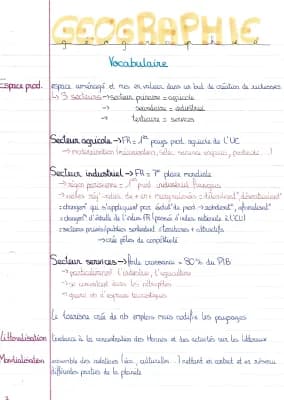 GEOGRAPHIE
géographie
Vocabulaire
Espace prod. espace aménagé et mis en valeur dans un but de création de richesses
↳ 3 secteurs → secteur primaire = agricole
→ secondaire = industriel
→ tertiaire = services
Secteur agricole → FR = 1er pays prod. agricole de l'UE
→ modernisation (mécanisation, sélec., engrais, pesticide...)
Secteur industriel → FR = 7e place mondiale
→ région parisienne = 1er prod. industriel français
→ autres rég. = désindustr.
= changent qui s'appliquent prod. → robotisent,
= changent d'échelle de l'indus FR (passée d'indus nationale à l'UE)
= secteurs privés/publics territoires + attractifs
→ crée pôles de compétitivité
Secteur services → forte croissance = 80 % du PIB
→ l'industrie, l'agriculture
→ se concentrent dans les métropoles
→ grand nb d'espaces touristiques
Le tourisme crée de nb emplois mais modifie les paysages
Littoralisation tendance à la concentration des Hommes et des activités sur les littoraux
Mondialisation ensemble des relations (éco, culturelles...) mettant en contact et en réseau
différentes parties de la planète